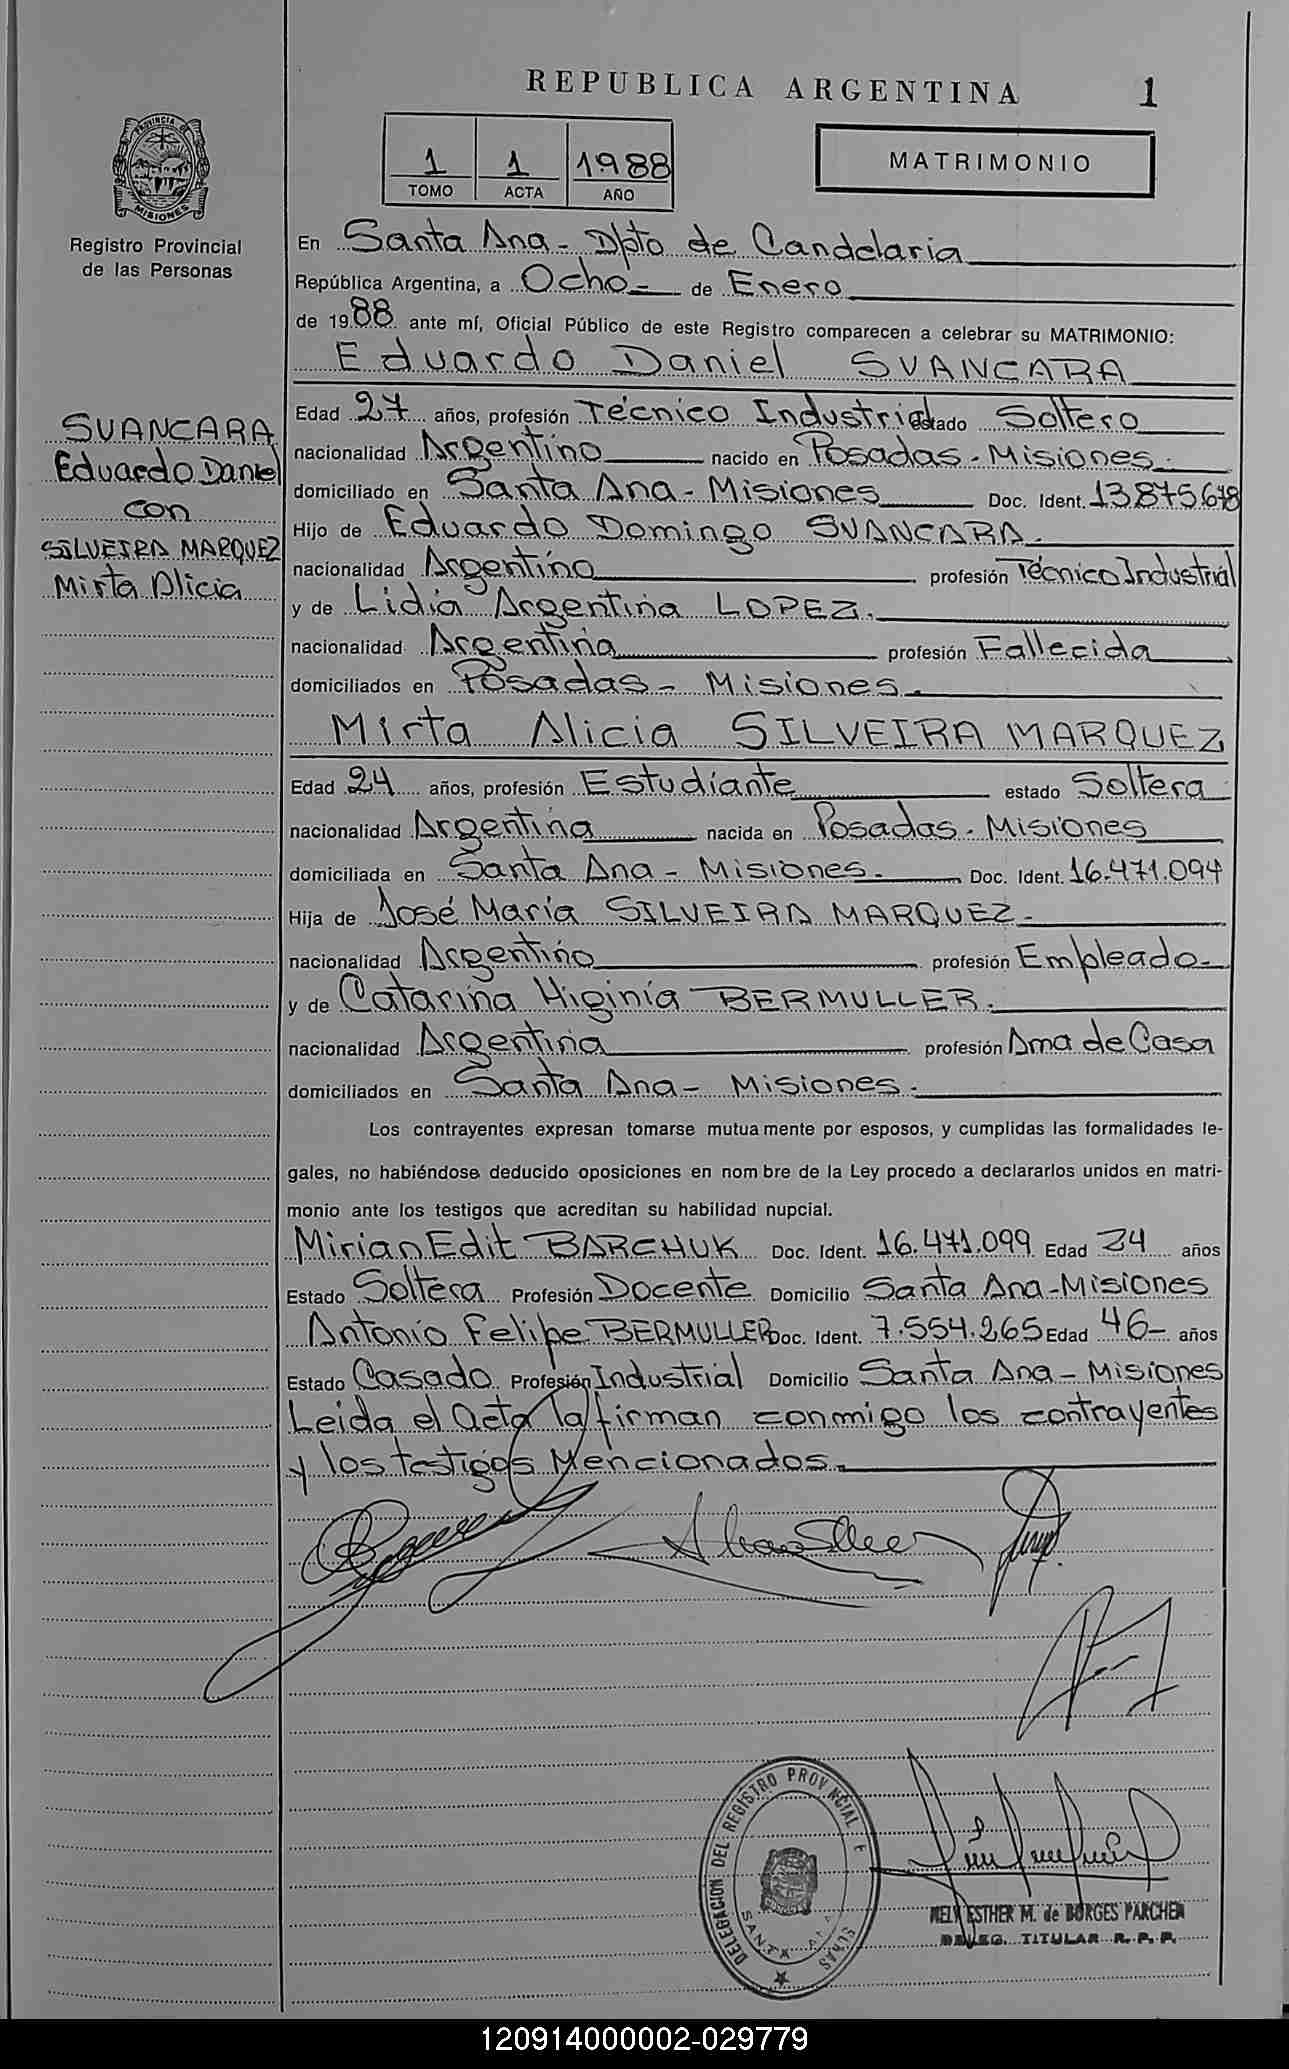 REPUBLICA ARGENTINA
1
1 1 1988
TOMO ACTA AÑO
MATRIMONIO
PROVINCIA DE
MISIONES
Registro Provincial
de las Personas
SVANCARA
Eduardo Daniel
con
SILVEIRA MARQUEZ
Mirta Alicia
En Santa Ana - Dpto de Candelaria
República Argentina, a Ocho - de Enero
de 1988 ante mí, Oficial Público de este Registro comparecen a celebrar su MATRIMONIO:
Eduardo Daniel SVANCARA
Edad 27 años, profesión Técnico Industrial estado Soltero
nacionalidad Argentino nacido en Posadas - Misiones.
domiciliado en Santa Ana - Misiones Doc. Ident. 13.875.678
Hijo de Eduardo Domingo SVANCARA.
nacionalidad Argentino profesión Técnico Industrial
y de Lidia Argentina LOPEZ.
nacionalidad Argentina profesión Fallecida
domiciliados en Posadas - Misiones.
Mirta Alicia SILVEIRA MARQUEZ
Edad 24 años, profesión Estudiante estado Soltera
nacionalidad Argentina nacida en Posadas - Misiones
domiciliada en Santa Ana - Misiones. Doc. Ident. 16.471.094
Hija de José María SILVEIRA MARQUEZ.
nacionalidad Argentino profesión Empleado-
y de Catarina Higinia BERMULLER.
nacionalidad Argentina profesión Ama de Casa
domiciliados en Santa Ana - Misiones.
Los contrayentes expresan tomarse mutuamente por esposos, y cumplidas las formalidades le-
gales, no habiéndose deducido oposiciones en nombre de la Ley procedo a declararlos unidos en matri-
monio ante los testigos que acreditan su habilidad nupcial.
Mirian Edit BARCHUK Doc. Ident. 16.471.099 Edad 24 años
Estado Soltera Profesión Docente Domicilio Santa Ana - Misiones
Antonio Felipe BERMULLER Doc. Ident. 7.554.265 Edad 46- años
Estado Casado Profesión Industrial Domicilio Santa Ana - Misiones
Leida el Acta la firman conmigo los contrayentes
y los testigos Mencionados.
DELEGACION DEL REGISTRO PROVINCIAL
SANTA ANA
NELY ESTHER M. de BORGES PARCHEN
DELEG. TITULAR R. P. P.
120914000002-029779